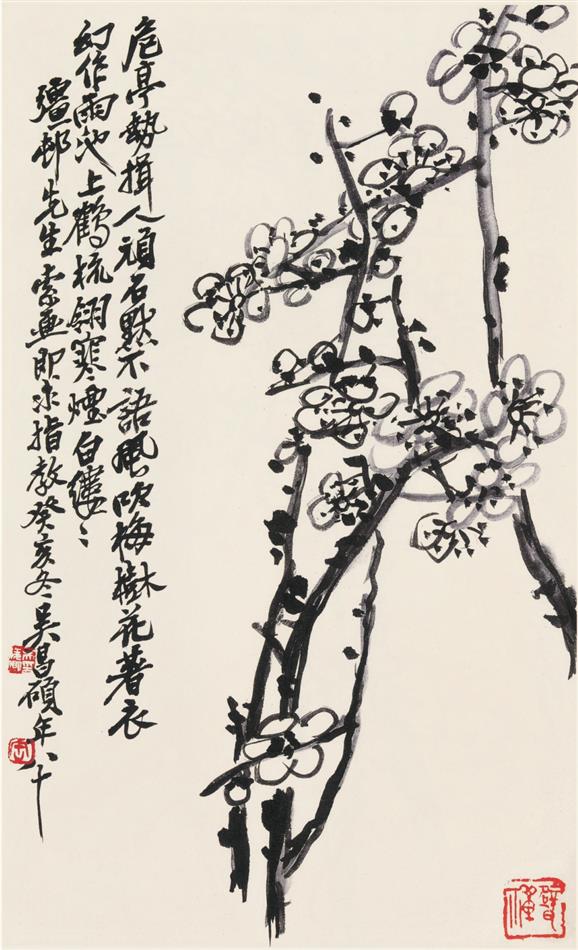 危亭势揖人頑石默不語風吹梅樹花著衣
幻作雨池上鶴梳翎寒煙白縷〻
彊邨先生索畫即求指教癸亥冬吴昌碩年八十